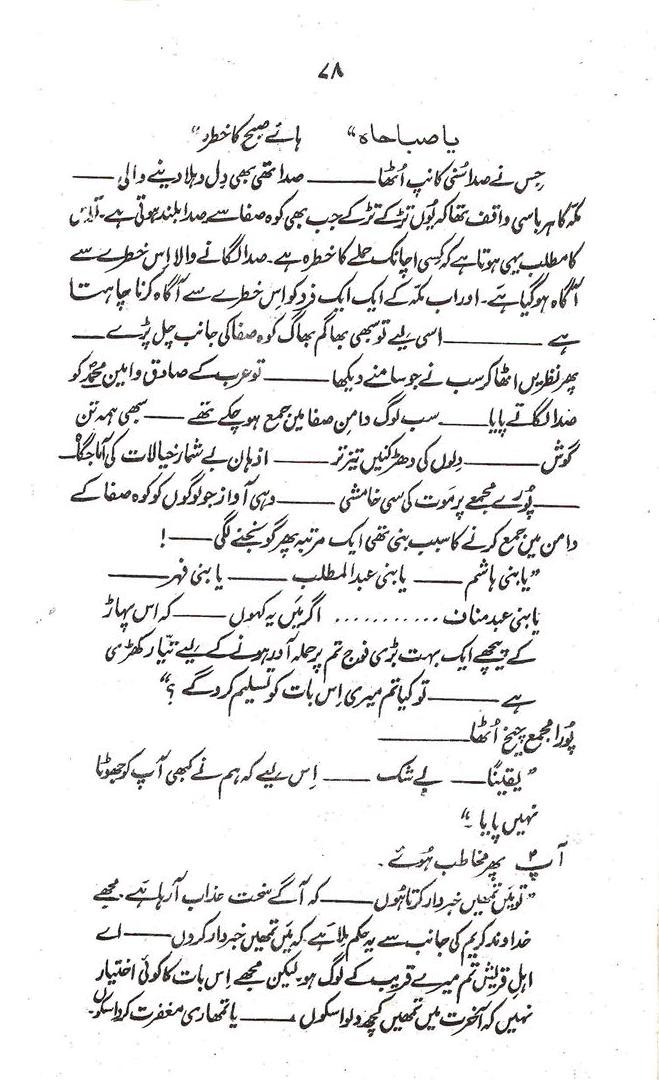 ۷۸
یا صباحاہ“ ہائے صبح کا خطرہ“
جِس نے صدا سُنی کانپ اُٹھا ــــــــ صدا تھی بھی دِل دہلا دینے والی ــــ
مکّہ کا ہر باسی واقف تھا کہ یُوں تڑکے تڑکے جب بھی کوہ صفا سے صدا بلند ہوتی ہے۔ تو اس
کا مطلب یہی ہوتا ہے کہ کِسی اچانک حملے کا خطرہ ہے۔ صدا لگانے والا اِس خطرے سے
آگاہ ہو گیا ہے۔ اور اب مکّہ کے ایک ایک فرد کو اِس خطرے سے آگاہ کرنا چاہتا
ہے ــــــــ اسی لیے تو سبھی بھاگم بھاگ کوہ صفا کی جانب چل پڑے ــــ
پھر نظریں اُٹھا کر سب نے جو سامنے دیکھا ــــــــ تو عرب کے صادق و امین محمدؐ کو
صدا لگاتے پایا ــــ سب لوگ دامن صفا میں جمع ہو چکے تھے ــــ سبھی ہمہ تن
گوش ــــــــ دِلوں کی دھڑکنیں تیز تر ــــــــ اذہان بے شمار خیالات کی آماجگاہ
ــــــــ پُورے مجمعے پر موت کی سی خامشی ــــــــ وہی آواز جو لوگوں کو کوہ صفا کے
دامن میں جمع کرنے کا سبب بنی تھی ایک مرتبہ پھر گونجنے لگی ــــ!
”یا بنی ہاشم ــــ یا بنی عبدالمطلب ــــ یا بنی فہر ــــــــ
یا بنی عبد مناف ........... اگر میں یہ کہوں ــــ کہ اس پہاڑ
کے پیچھے ایک بہت بڑی فوج تم پر حملہ آور ہونے کے لیے تیّار کھڑی
ہے ــــــــ تو کیا تم میری اِس بات کو تسلیم کرو گے ؟“
پُورا مجمع چیخ اُٹھا ــــــــ
”یقینًا ــــ بے شک ــــ اِس لیے کہ ہم نے کبھی آپ کو جھوٹا
نہیں پایا ۔“
آپؐ پھر مخاطب ہُوئے ۔
”تو میں تمھیں خبردار کرتا ہُوں ــــــــ کہ آگے سخت عذاب آ رہا ہے۔ مجھے
خداوند کریم کی جانب سے یہ حکم مِلا ہے کہ میں تمھیں خبردار کردوں ــــ اے
اہلِ قریش تم میرے قریب کے لوگ ہو۔ لیکن مجھے اِس بات کا کوئی اختیار
نہیں کہ آخرت میں تمھیں کچھ دلوا سکوں ــــــــ یا تمھاری مغفرت کروا سکوں۔